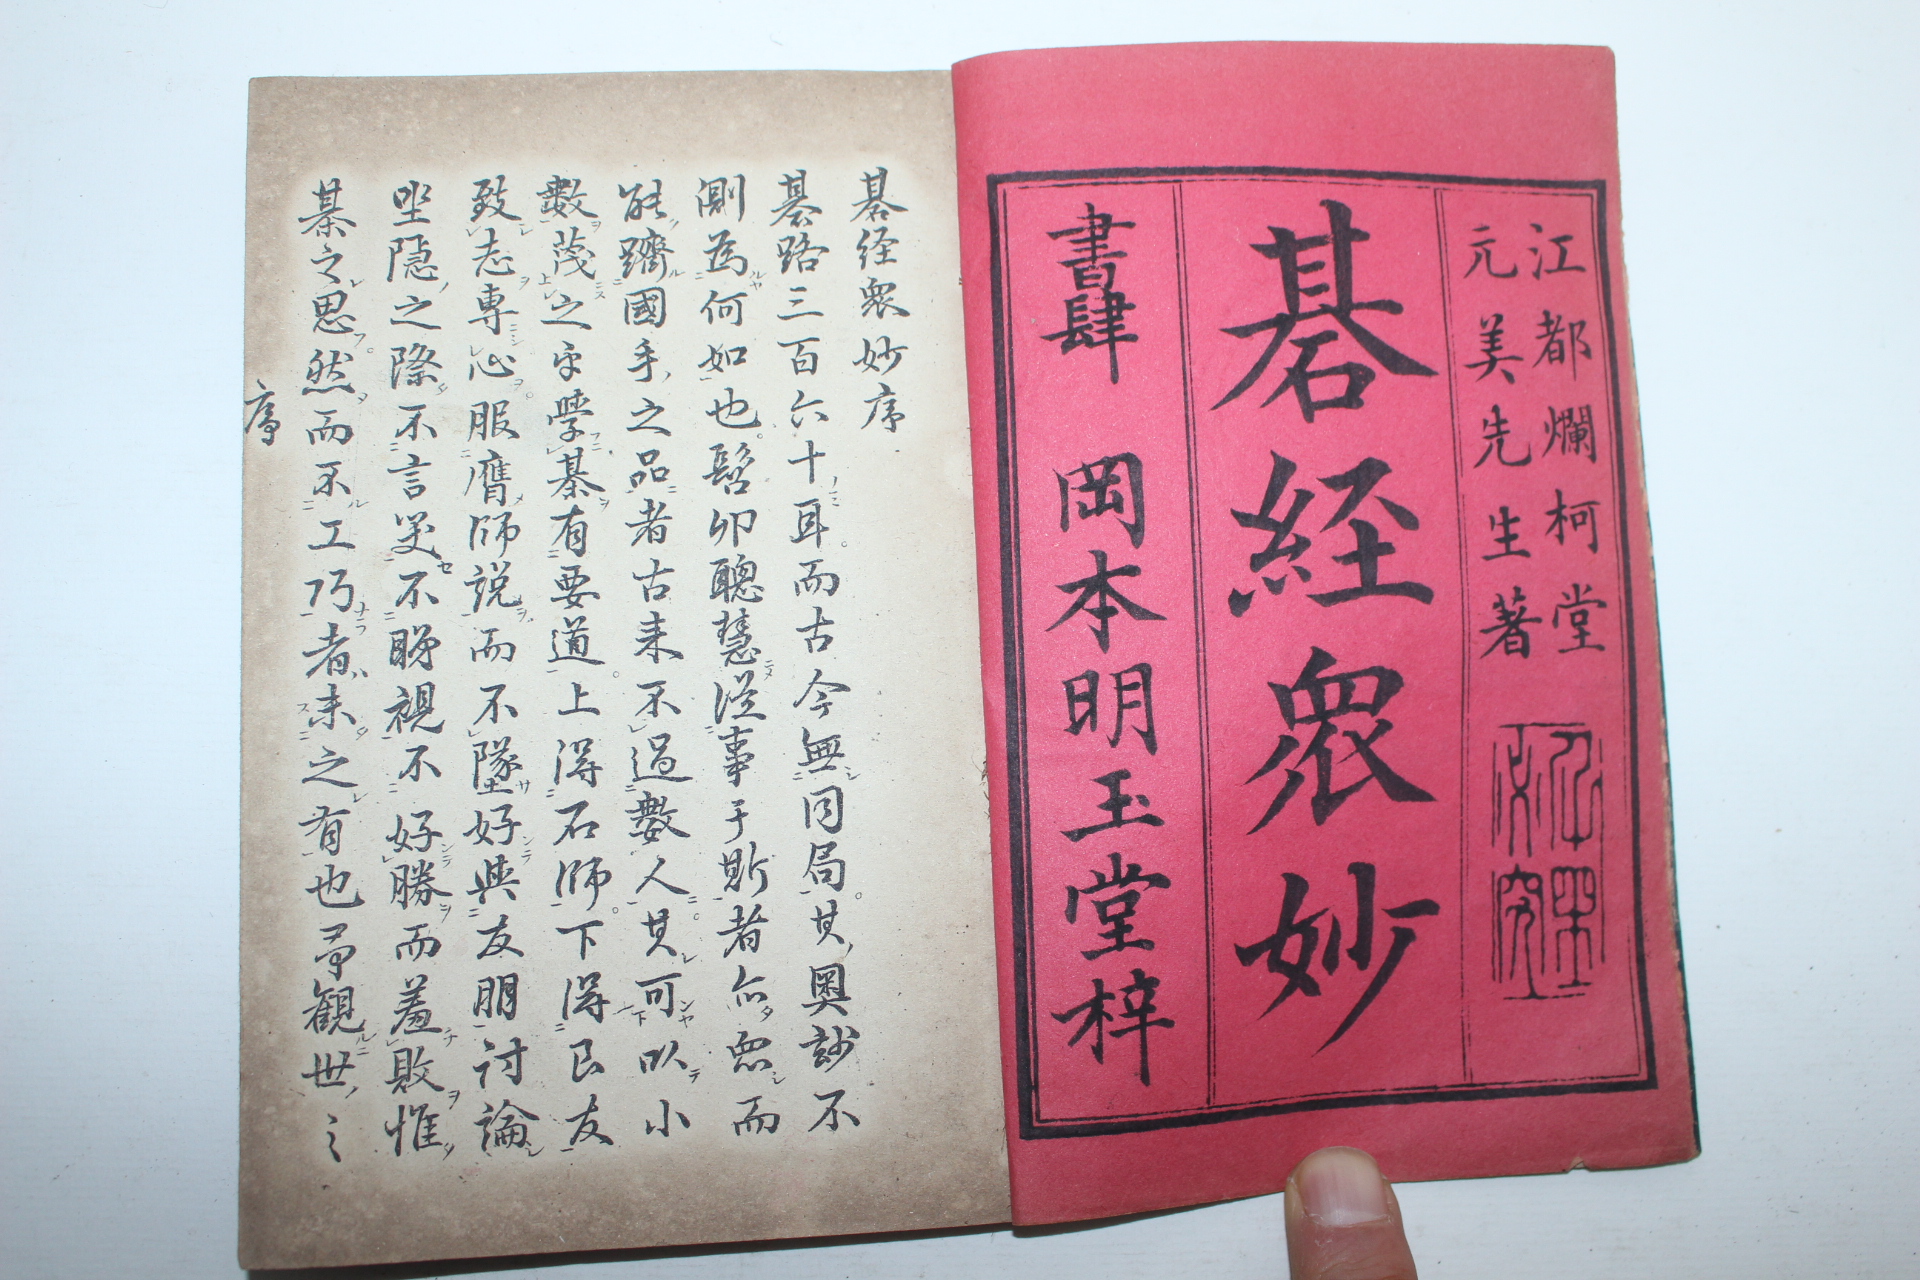 江都爛柯堂
元美先生著
碁経衆妙
書肆 岡本明玉堂梓
碁経衆妙序
碁路三百六十耳而古今無同局其奥玅不
測為何如也髫丱聰慧従事于斯者亦衆而
能躋國手之品者古来不過數人其可以小
數蔑之乎學棊有要道上得石師下得良友
致志専心服膺師説而不墜好與友朋討論
坐隠之際不言笑不睇視不好勝而羞敗惟
棊之思然而不工巧者未之有也予観世之
序